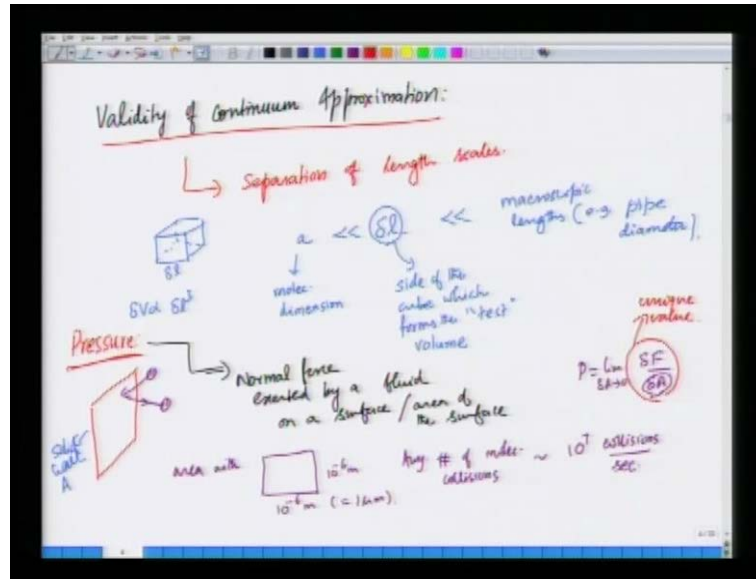 Validity of Continuum Approximation:
Separation of length scales.
a << δl << macroscopic lengths (e.g. pipe diameter).
δl
δV α δl³
molec. dimension
side of the cube which forms the "test" volume
Pressure:
Normal force
exerted by a fluid
on a surface / area of
the surface
unique value.
P = lim δA→0 δF/δA
solid wall A
area with
10⁻⁶ m
10⁻⁶ m (= 1 μm).
Avg # of molec. collisions ~ 10⁷ collisions/sec.